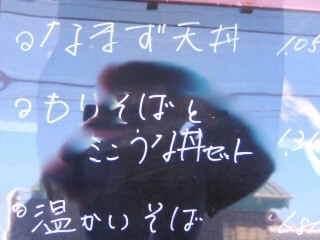 ◎なまず天丼 1.05
◎もりそばと
ミニうな丼セット 1.3
◎温かいそば 680